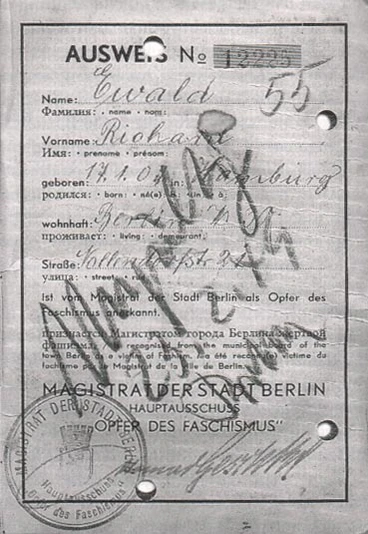 AUSWEIS No 12225
55
Name: Ewald
Фамилия: · name · nom:
Vorname: Richard
Имя: · prename · prénom:
geboren: 17.1.09 in: Hamburg
родился: · born: · né(e) in: à
wohnhaft: Berlin
проживает: · living: · demeurant:
Straße:
улица: · street: · rue:
Ist vom Magistrat der Stadt Berlin als Opfer des
Faschismus anerkannt.
признается Магистратом города Берлина жертвой
фашизма. is recognised from the municipal board of the
town Berlin as a victim of Fashism. Ma été reconnu(e) victime du
fachisme par le Magistrat de la ville de Berlin.
Ungültig
MAGISTRAT DER STADT BERLIN
HAUPTAUSSCHUSS
„OPFER DES FASCHISMUS"
MAGISTRAT DER STADT BERLIN
Hauptausschuss
„Opfer des Faschismus"